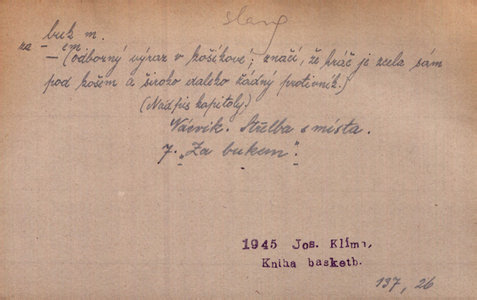 slang
buk m.
za – em
– (odborný výraz v košíkové; značí, že hráč je zcela sám
pod košem a široko daleko žádný protivník.)
(Nadpis kapitoly)
Nácvik. Střelba s místa.
7. "Za bukem".
1945 Jos. Klíma,
Kniha basketb.
137, 26